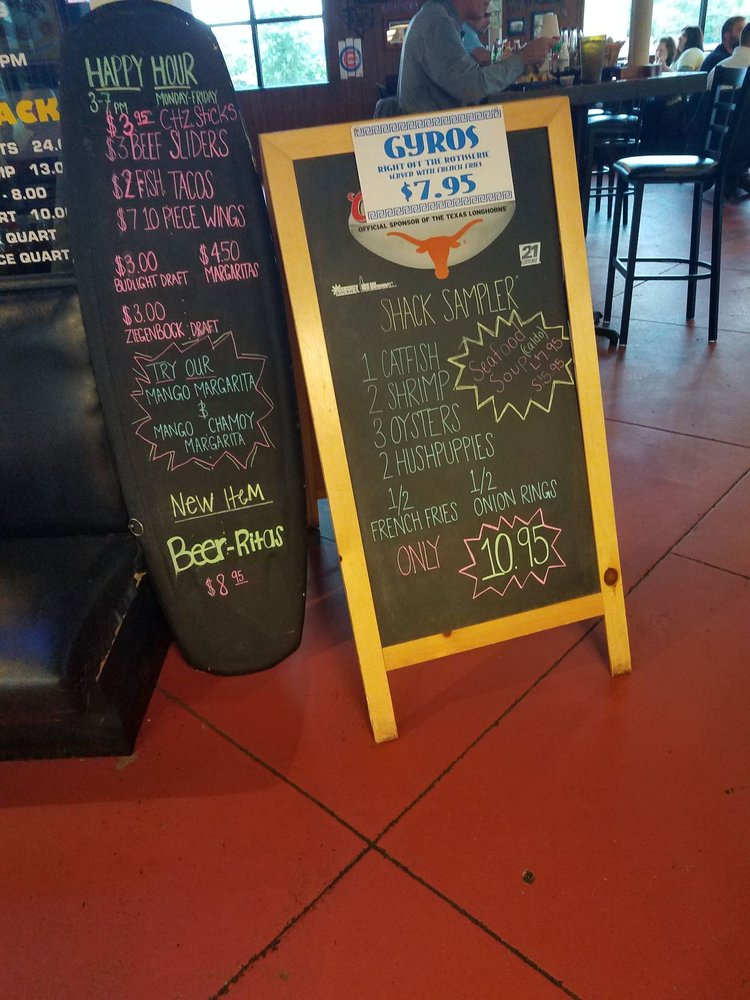 PM
ACK
TS 24.
MP 13.0
- 8.00
RT 10.0
QUART
CE QUART
HAPPY HOUR
3-7PM MONDAY-FRIDAY
$3.95 CHZ STICKS
$3 BEEF SLIDERS
$2 FISH TACOS
$7 10 PIECE WINGS
$3.00
BUDLIGHT DRAFT
$4.50
MARGARITAS
$3.00
ZIEGENBOCK DRAFT
TRY OUR
MANGO MARGARITA
&
MANGO CHAMOY
MARGARITA
NEW ITEM
Beer-Ritas
$8.95
GYROS
RIGHT OFF THE ROTISSERIE
SERVED WITH FRENCH FRIES
$7.95
OFFICIAL SPONSOR OF THE TEXAS LONGHORNS
21
SHACK SAMPLER
1 CATFISH
2 SHRIMP
3 OYSTERS
2 HUSHPUPPIES
1/2
FRENCH FRIES
1/2
ONION RINGS
ONLY 10.95
Seafood
Soup (Caldo)